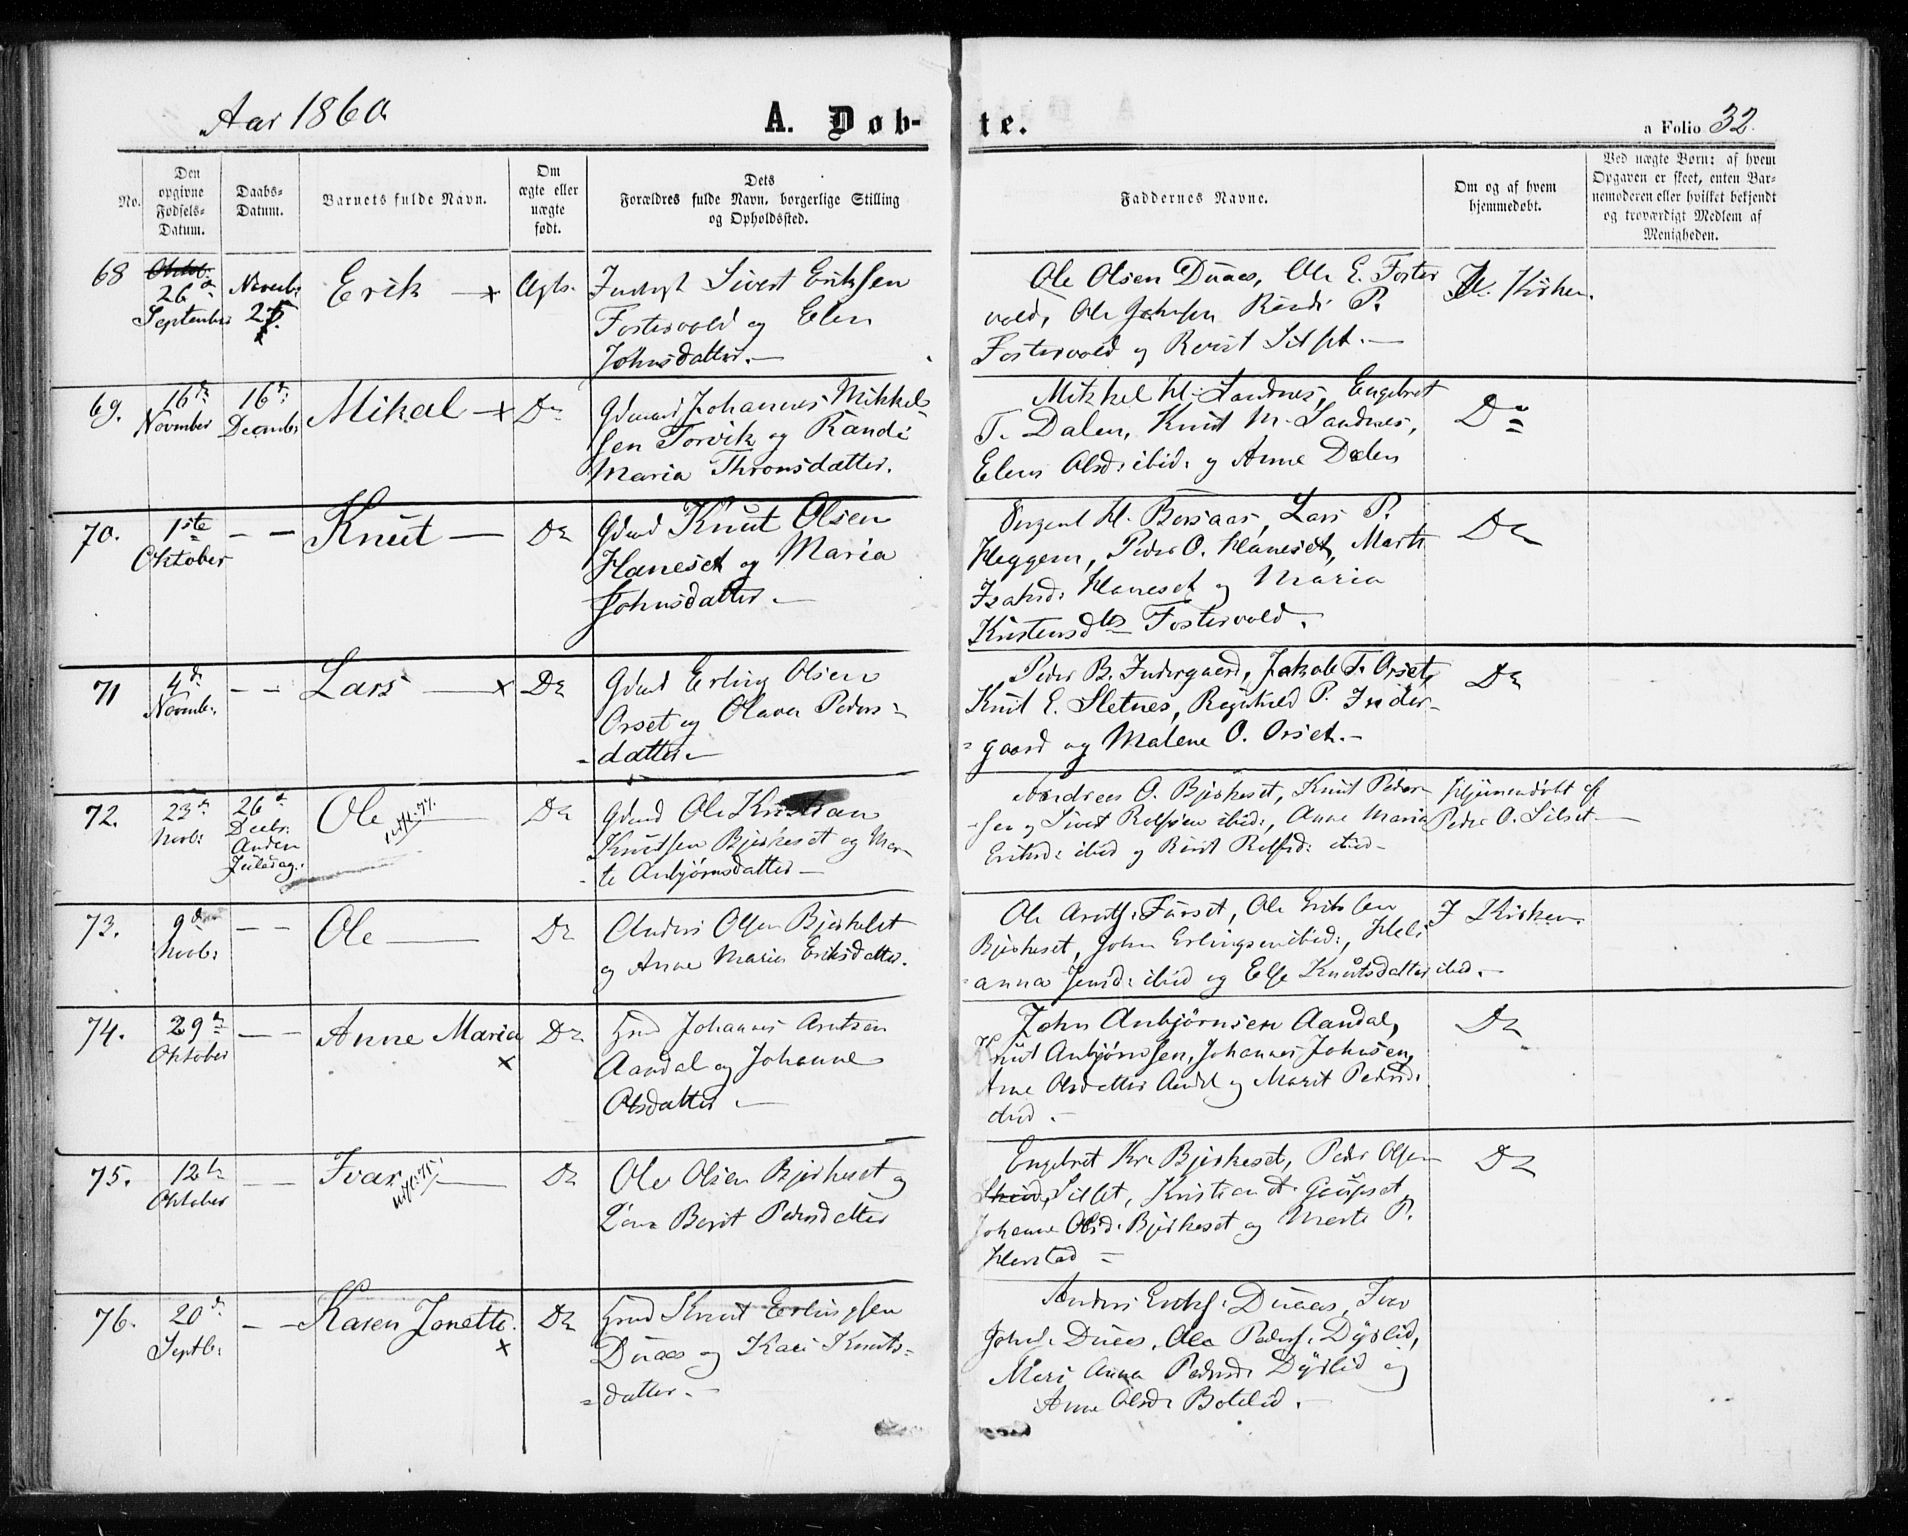 Aar 1860
A. Døb-
te.
a Folio 32.
No.
Den opgivne Fødsels-Datum.
Daabs-Datum.
Barnets fulde Navn.
Om ægte eller uægte født.
Dets Forældres fulde Navn, borgerlige Stilling og Opholdssted.
Faddernes Navne.
Om og af hvem hjemmedøbt.
Ved uægte Børn: af hvem Opgaven er skeet, enten Barnemoderen eller hvilket bekjendt og troværdigt Medlem af Menigheden.
68
26 September
Novemb: 25.
Erik
Ægte.
Sivert Eriksen
Fostervold og Elen
Johnsdatter.
Ole Olsen Duaas, Ole E. Foster
vold, Ole Johnsen Randi P.
Fostervold og Berit Silset.
I Kirken.
69.
16de November
16de Decemb:
Mikal
Do
Gdmand Johannes Mikkel-
sen Torvik og Randi
Maria Thronsdatter.
Mikkel M. Sandnes, Engebret
T. Dalen, Knut M. Sandnes,
Elen Olsd: ibid: og Anne Dalen
Do
70.
1ste Oktober
— —
Knut
Do
Gdmd Knut Olsen
Haneset og Maria
Johnsdatter.
H. Borsaas, Lars P.
Heggem, Peder O. Haneset, Marth
Isaksd: Haneset og Maria
Kristensdtr Fostervold.
Do
71
4de Novemb:
— —
Lars
Do
Gdmd Erling Olsen
Orset og Olava Peders=
=datter
Peder B. Indergaard, Jakob T. Orset,
Knut E. Sletnes, Ragnhild P. Inder-
=gaard og Malene O. Orset.
Do
72.
23de Novb:
26de Decbr. Anden Juledag.
Ole
Do
Gdmd Ole Kristian
Knutsen Bjerkeset og Mar-
te Anbjørnsdatter
Andreas O. Bjerkeset, Knut Peder-
sen og Sivert Rolfsen ibid:, Anne Maria
Eriksd: ibid og Berit Rolfsd: ibid
Hjemmedøbt af
Peder O. Silset
73.
9de Novb:
— —
Ole
Do
Anders Olsen Bjerkeset
og Anne Maria Eriksdatter.
Ole Arntz: Farset, Ole Eriksen
Bjerkeset, John Erlingsen ibid:, Heli
=anna Jensd: ibid og Else Knutsdatter ibid.
I Kirken.
74.
29de Oktober
— —
Anne Maria
Do
Johannes Arntsen
Aandal og Johanne
Olsdatter
John Anbjørnsen Aandal,
Knut Anbjørnsen, Johannes Johnsen,
Ane Olsdatter Aandal og Marit Pedersd:
ibid.
Do
75.
12te Oktober
— —
Ivar
Do
Ole Olsen Bjerkeset og
Berit Pedersdatter
Engebret Bjerkeset, Peder Olsen
Silset, Kristian Gaupset
Johanne Olsd: Bjerkeset og Marte P.
Harstad
Do
76.
20de Septbr:
— —
Karen Jonette.
Do
Knut Erlingsen
Duaas og Kari Knuts=
=datter.
Anders Eriks: Duaas, Ivar
Johns: Duaas, Ole Peders: Dyrlid,
Mari Anna Pedersd: Dyrlid og
Anne Olsd: Botelid.